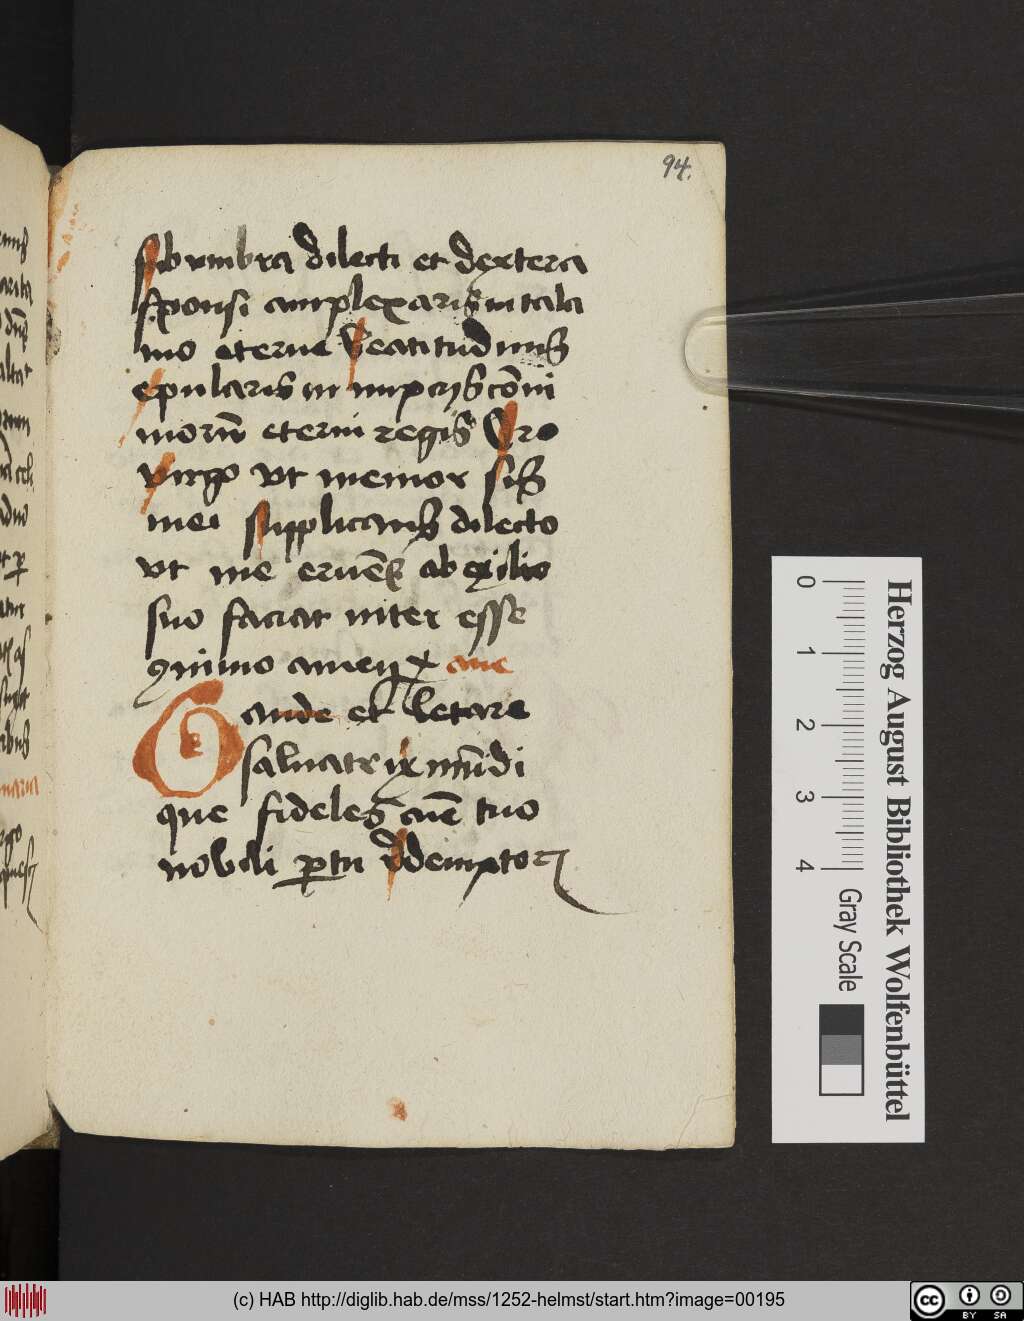 94.
sub vmbra dilecti et dextera
sponsi amplexaris in tala
mo eterne beatitudinis
epularis in nupcijs cōui
uiorū eterni regis Oro
virgo vt memor sis
mei supplicans dilecto
vt me eruēs ab exilio
suo faciat inter esse
ꝯuiuio amen aue
Gaude et letare
saluatrix mūdi
que fideles cūe tuo
nobili ꝑtu redemptor
Herzog August Bibliothek Wolfenbüttel
0 1 2 3 4
Gray Scale
(c) HAB http://diglib.hab.de/mss/1252-helmst/start.htm?image=00195
cc BY SA